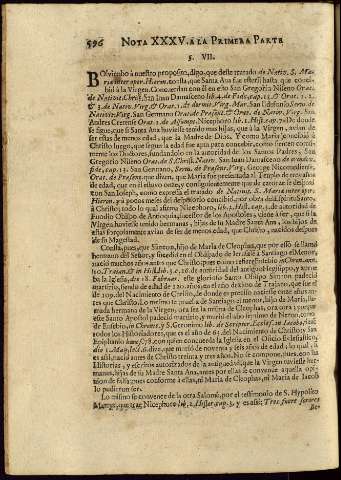 596 NOTA XXXV. A LA PRIMERA PARTE
§. VII.
Bolviendo à nuestro proposito, digo, que deste tratado de Nativ. S. Ma-
ria inter oper. Hieron. consta, que Santa Ana fue esteril hasta que conci-
biò à la Virgen. Concuerdan con èl en esto San Gregorio Niseno Orat.
de Nativit. Christ. San Juan Damasceno lib. 4. de Fide, cap. 15. & Orat. 1. 2.
& 3. de Nativ. Virg. Orat. 1. de dormit. Virg. Mar. San Ildefonso Serm. de
Nativit. Virg. San Germano Orat. de Præsent. Virg. & Orat. de Nativ. Virg. San
Andres Cretense Orat. 2. de Assumpt. Nicephoro lib. 1. Hist. cap. 7. De donde
se sigue, que si Santa Ana huviesse tenido mas hijas, que à la Virgen, avian de ser
estas de menor edad, que la Madre de Dios. Y como Maria concibiò à
Christo luego, que segun la edad fue apta para concebir, como sienten comun-
mente los Doctores, fundandose en la autoridad de los Santos Padres, San
Gregorio Niseno Orat. de S. Christ. Nativ. San Juan Damasceno de
fide, cap. 15. San Germano, Serm. de Præsent. Virg. George Nicomediense,
Orat. de Præsent. que dizen, que Maria fue presentada al Templo de tres años
de edad, que en el estuvo onze, y consiguientemente quando
San Joseph, como expressa el tratado de Nativ. S. Mariæ inter oper.
Hieron. y à pocos meses del desposorio concibiò, por obra del Espiritu Santo,
à Christo; todo lo qual afirma Nicephoro, lib. 2. Hist. cap. 3. de autoridad de
Euodio Obispo de Antioquia, sucessor de los Apostoles, viene à ser, que si la
Virgen huviesse tenido hermanas, hijas de su Madre Santa Ana, los hijos de
ellas forçosamente avian de ser de menos edad, que Christo, nacidos despues
de su Magestad.
Consta, pues, que Simeon, hijo de Maria de Cleophas, que por esso se llamò
hermano del Señor, y sucediò en el Obispado de Jerusalen à Santiago el Menor,
naciò muchos años antes que Christo; pues como refiere Eusebio in Chron. ann.
10. Trajan. & in Hist. lib. 3. c. 26. de autoridad del antiguo Hegisippo, y aprue-
ba la Iglesia, die 18. Februar. este glorioso Santo Obispo Simeon padeciò
martirio, siendo de edad de 120. años, en el año de 10. de Trajano, que fue el
de 109. del Nacimiento de Christo, de donde es preciso naciesse onze años an-
tes que Christo. Lo mismo se prueba de Santiago el menor, hijo de Maria, lla-
mada hermana de la Virgen, ora sea la misma, que Cleophas, ora otra; porque
este Santo Apostol padeciò martirio, y muriò el año setimo de Neron, como
de Eusebio, in Chronic. y S. Geronimo lib. de Scriptor. Eccles. in Jacobo, sacan
todos los Historiadores, que es el año de 63. del Nacimiento de Christo. San
Epiphanio hæres. 78. con quien concuerda la Iglesia en el Oficio Eclesiastico,
die 1. Maij, lect. 6. dize, que murió de noventa y seis años de edad; lo qual si
es assi, naciò antes de Christo treinta y tres años. No se compone, pues, con las
Historias, y escritos autorizados de la antiguedad, que la Virgen tuviesse her-
manas, hijas de su Madre Santa Ana, antes por ellas se convence aquella opi-
nion de falsa; pues conforme à ellas, ni Maria de Cleophas, ni Maria de Jacobo
lo pudieron ser.
Lo mismo se convence de la otra Salomè, por el testimonio de S. Hypolito
Martyr, que trae Nicephoro lib. 2. Histor. cap. 3. y es assi: Tres fuere sorores
Be-